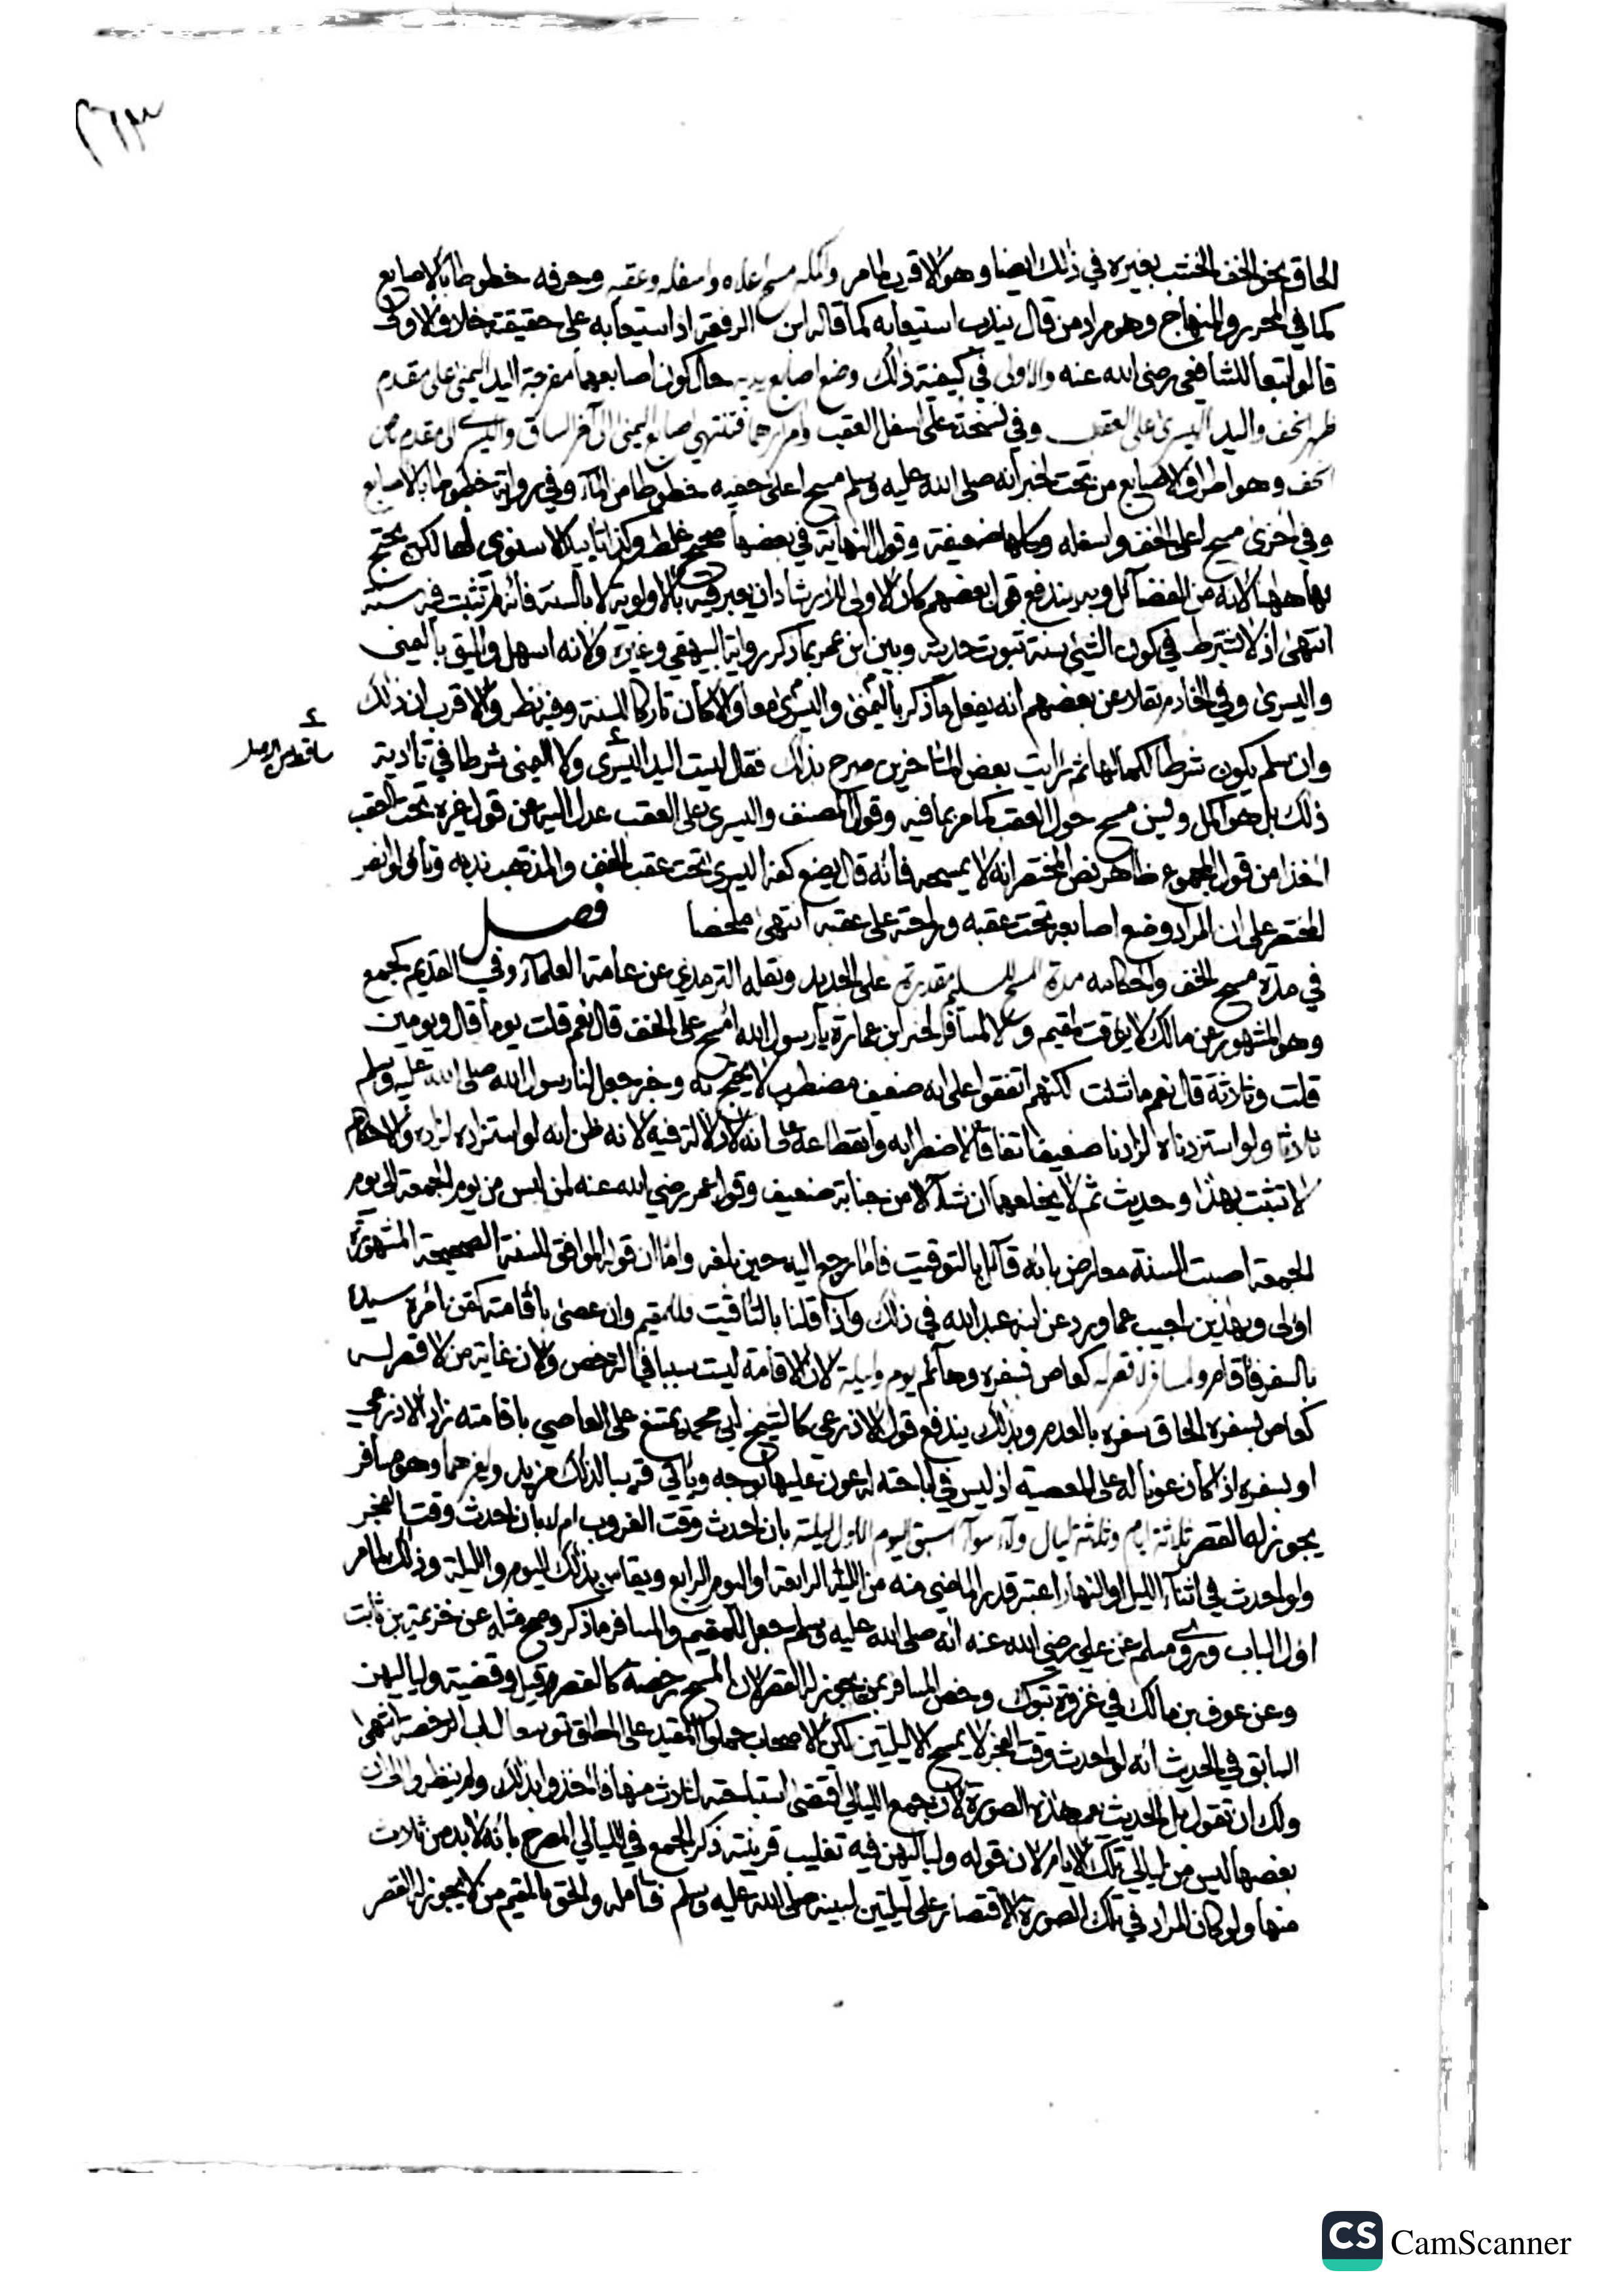 ٢٦٣
الحاق نحو الخف الخشب بغيره في ذلك ايضا وهو الاقرب لما مر واكمله مسح اعلاه واسفله وعقبه وحرفه خطوطا بالاصابع
كما في المحرر والمنهاج وهو مراد من قال يندب استيعابه كما قاله ابن الرفعة اذ استيعابه على حقيقته خلاف الاولى
قالوا تبعا للشافعي رضي الله عنه والاولى في كيفية ذلك وضع اصابع يديه حال كون اصابعهما مفرجة اليد اليمنى على مقدم
ظهر الخف واليد اليسرى على العقب وفي نسخة على اسفل العقب وامرارهما فتنتهي اصابع اليمنى الى آخر الساق واليسرى الى مقدم بطن
الخف وهو اطراف الاصابع من تحت لخبر انه صلى الله عليه وسلم مسح اعلى خفيه خطوطا من الماء وفي رواية خطوطا بالاصابع
وفي اخرى مسح اعلى الخف واسفله وكلها ضعيفة وقول النهاية في بعضها صحيح غلط وكذا تاييد الاسنوي لها لكن يحتج
بها ههنا لانه من الفضائل وبه يندفع قول بعضهم كان الاولى للارشاد ان يعبر فيه بالاولوية لا بالسنة فانه لم تثبت فيه سنة
انتهى اذ لا يشترط في كون الشيء سنة ثبوت حديثه وبين ابن عمر بما ذكر رواية البيهقي وغيره ولانه اسهل واليق باليمنى
واليسرى وفي الخادم نقلا عن بعضهم انه يفعل ما ذكر باليمنى واليسرى معا والا كان تاركا للسنة وفيه نظر والاقرب ان ذلك
وان سلم يكون شرطا لكمالها ثم رايت بعض المتاخرين صرح بذلك فقال ليست اليد اليسرى ولا اليمنى شرطا في تادية
ذلك بل هو اكمل وليس مسح حول العقب كما مر بما فيه وقول المصنف واليسرى على العقب عدل اليه عن قول غيره تحت العقب
اخذا من قول المجموع ظاهر نص المختصر انه لا يمسحه فانه قال يضع كفه اليسرى تحت عقب الخف والمذهب ندبه وتاولوا نص
المختصر على ان المراد وضع اصابعه تحت عقبه وراحته على عقبه انتهى ملخصا فصل
في مدة مسح الخف واحكامه مدة المسح للمسلم مقدرة على الجديد ونقله الترمذي عن عامة العلماء وفي القديم كجمع
وهو المشهور عن مالك لا يؤقت لمقيم ولا لمسافر لخبر ابن عمارة يا رسول الله امسح على الخف قال نعم قلت يوما قال ويومين
قلت وثلاثة قال نعم ما شئت لكنهم اتفقوا على انه ضعيف مضطرب لا يحتج به وخبر جعل لنا رسول الله صلى الله عليه وسلم
ثلاثا ولو استزدناه لزادنا ضعيف اتفاقا لاضطرابه وانقطاعه على انه لا دلالة فيه لانه ظن انه لو استزاده لزاده والاحكام
لا تثبت بهذا وحديث ثم لا يخلعهما ان شاء الا من جنابة ضعيف وقول عمر رضي الله عنه لمن لبس من يوم الجمعة الى يوم
الجمعة اصبت السنة معارض بانه قائل بالتوقيت فاما رجع اليه حين بلغه واما ان قوله الموافق للسنة الصحيحة المشهورة
اولى وبهذين اجيب عما ورد عن ابنه عبد الله في ذلك واذا قلنا بالتاقيت فللمقيم وان عصى باقامته كقن امره سيده
بالسفر فاقام ولمسافر لا قصر له كعاص بسفره وهائم يوم وليلة لان الاقامة ليست سببا في الترخص ولان غاية من لا قصر له
كعاص بسفره الحاق سفره بالعدم وبذلك يندفع قول الاذرعي كالشيخ ابي محمد يمتنع على العاصي باقامته زاد الاذرعي
او بسفره اذا كان عونا له على المعصية اذ ليس في اباحته له عون عليها بوجه وياتي قريبا لذلك مزيد ولغيرهما وهو مسافر
يجوز له القصر ثلاثة ايام وثلثة ليال ولاء سواء اسبق اليوم الاول ليلته بان احدث وقت الغروب ام لا بان احدث وقت الفجر
ولو احدث في اثناء الليل او النهار اعتبر قدر الماضي منه من الليلة الرابعة او اليوم الرابع ويقاس بذلك اليوم والليلة وذلك لما مر
اول الباب وروى مسلم عن علي رضي الله عنه انه صلى الله عليه وسلم جعل للمقيم والمسافر ما ذكر وصح مثله عن خزيمة بن ثابت
وعن عوف بن مالك في غزوة تبوك وخص المسافر بمن يجوز له القصر لان المسح رخصة كالقصر قيل وقضية ولياليهن
السابق في الحديث انه لو احدث وقت الفجر لا يمسح الا ليلتين لكن الاصحاب حملوا المقيد على المطلق توسعا لباب الرخصة انتهى
ولك ان تقول بل الحديث يعم هذه الصورة لان جمع الليالي اقتضى استباحته لثلاث منها فاخذوا بذلك ولم ينظروا الى ان
بعضها ليس من ليالي تلك الايام لان قوله ولياليهن فيه تغليب قرينته ذكر الجمع في الليالي المصرح بانه لا بد من ثلاث
منها ولو كان المراد في تلك الصورة الاقتصار على ليلتين لبينه صلى الله عليه وسلم فتامله والحق بالمقيم من لا يجوز له القصر
CS CamScanner